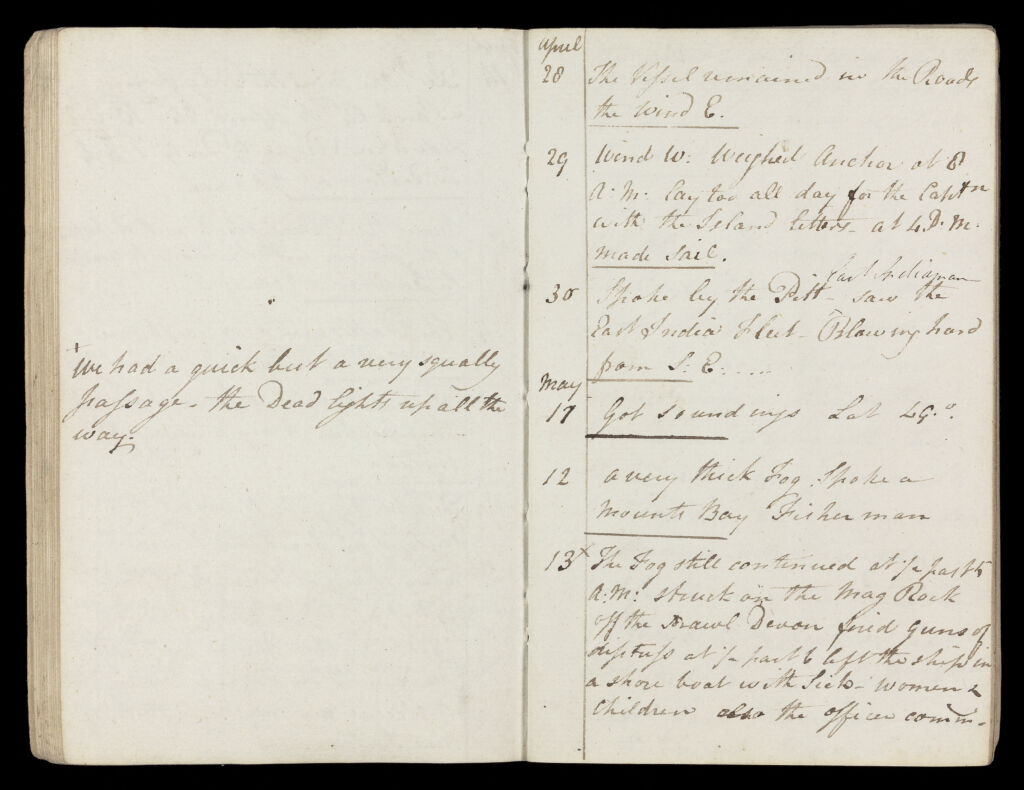 + We had a quick but a very squally
passage - the Dead lights up all the
way.
April
28 The Vessel remained in the Roads
the Wind E.
29 Wind W: Weighed Anchor at 8
A: M: Lay too all day for the Captn
with the Island letters - at 4 P. M.
made sail.
East Indiaman
30 Spoke by the Pitt - ^ saw the
East India Fleet - Blowing hard
from S: E: ....
May
11 Got soundings Lat 49.°
12 a very thick Fog. Spoke a
Mounts Bay Fisherman
13 x The Fog still continued at ½ past 5
A: M: struck on the Mag Rock
off the Prawl Devon fired Guns of
distress at ½ past 6 left the ship in
a shore boat with Sick - Women &
Children also the officer comm-